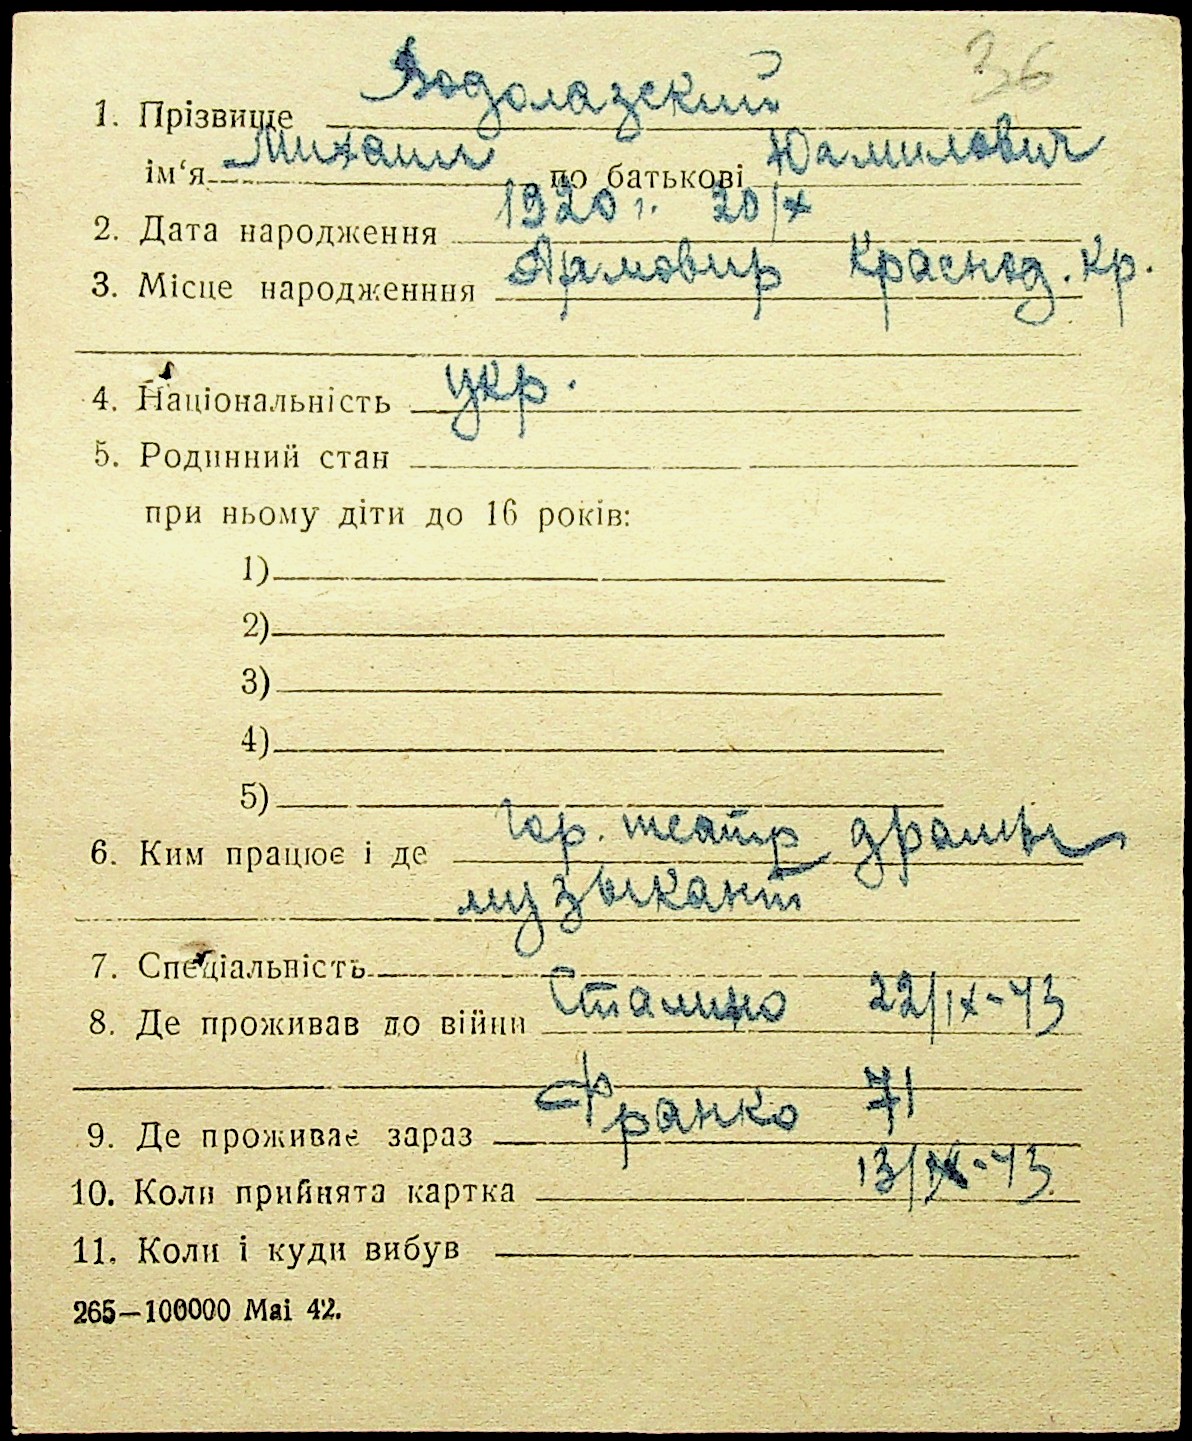 36
1. Прізвище Водолазский
ім'я Михаил по батькові Юамилович
2. Дата народження 1920 г. 20/X
3. Місце народженння Армавир Краснод. кр.
4. Національність укр.
5. Родинний стан
при ньому діти до 16 років:
1)
2)
3)
4)
5)
6. Ким працює і де Гор. театр драмы
музыкант
7. Спеціальність
8. Де проживав до війни Сталино 22/IX-43
9. Де проживає зараз Франко 71
10. Коли прийнята картка 13/IX-43
11. Коли і куди вибув
265—100000 Mai 42.